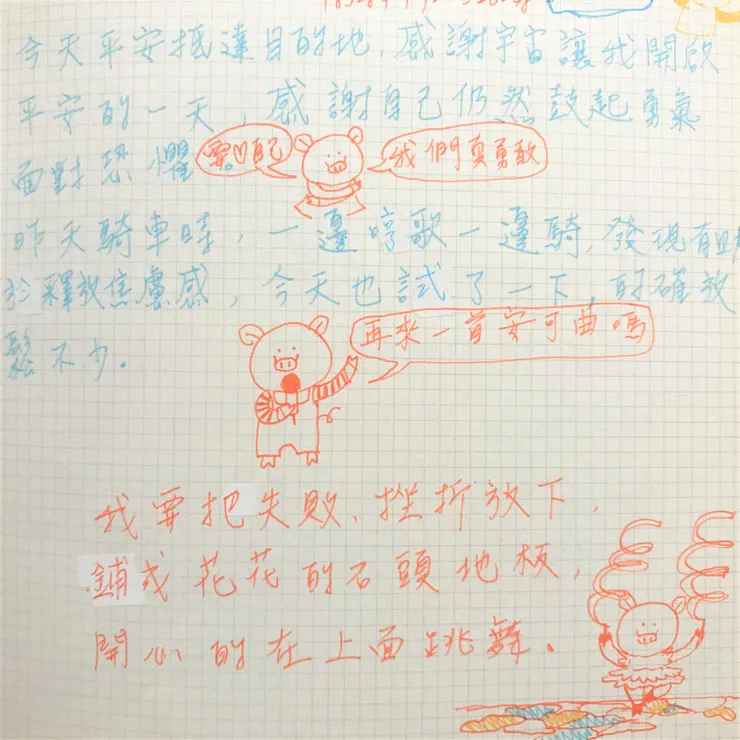 今天平安抵達目的地,感謝宇宙讓我開啟
平安的一天,感謝自己仍然鼓起勇氣
面對恐懼。
我們真勇敢
昨天騎車時,一邊哼歌一邊騎,發現有助
於釋放焦慮感,今天也試了一下,的確放
鬆不少.
再來一首安可曲嗎
我要把失敗、挫折放下,
鋪成花花的石頭地板,
開心的在上面跳舞.